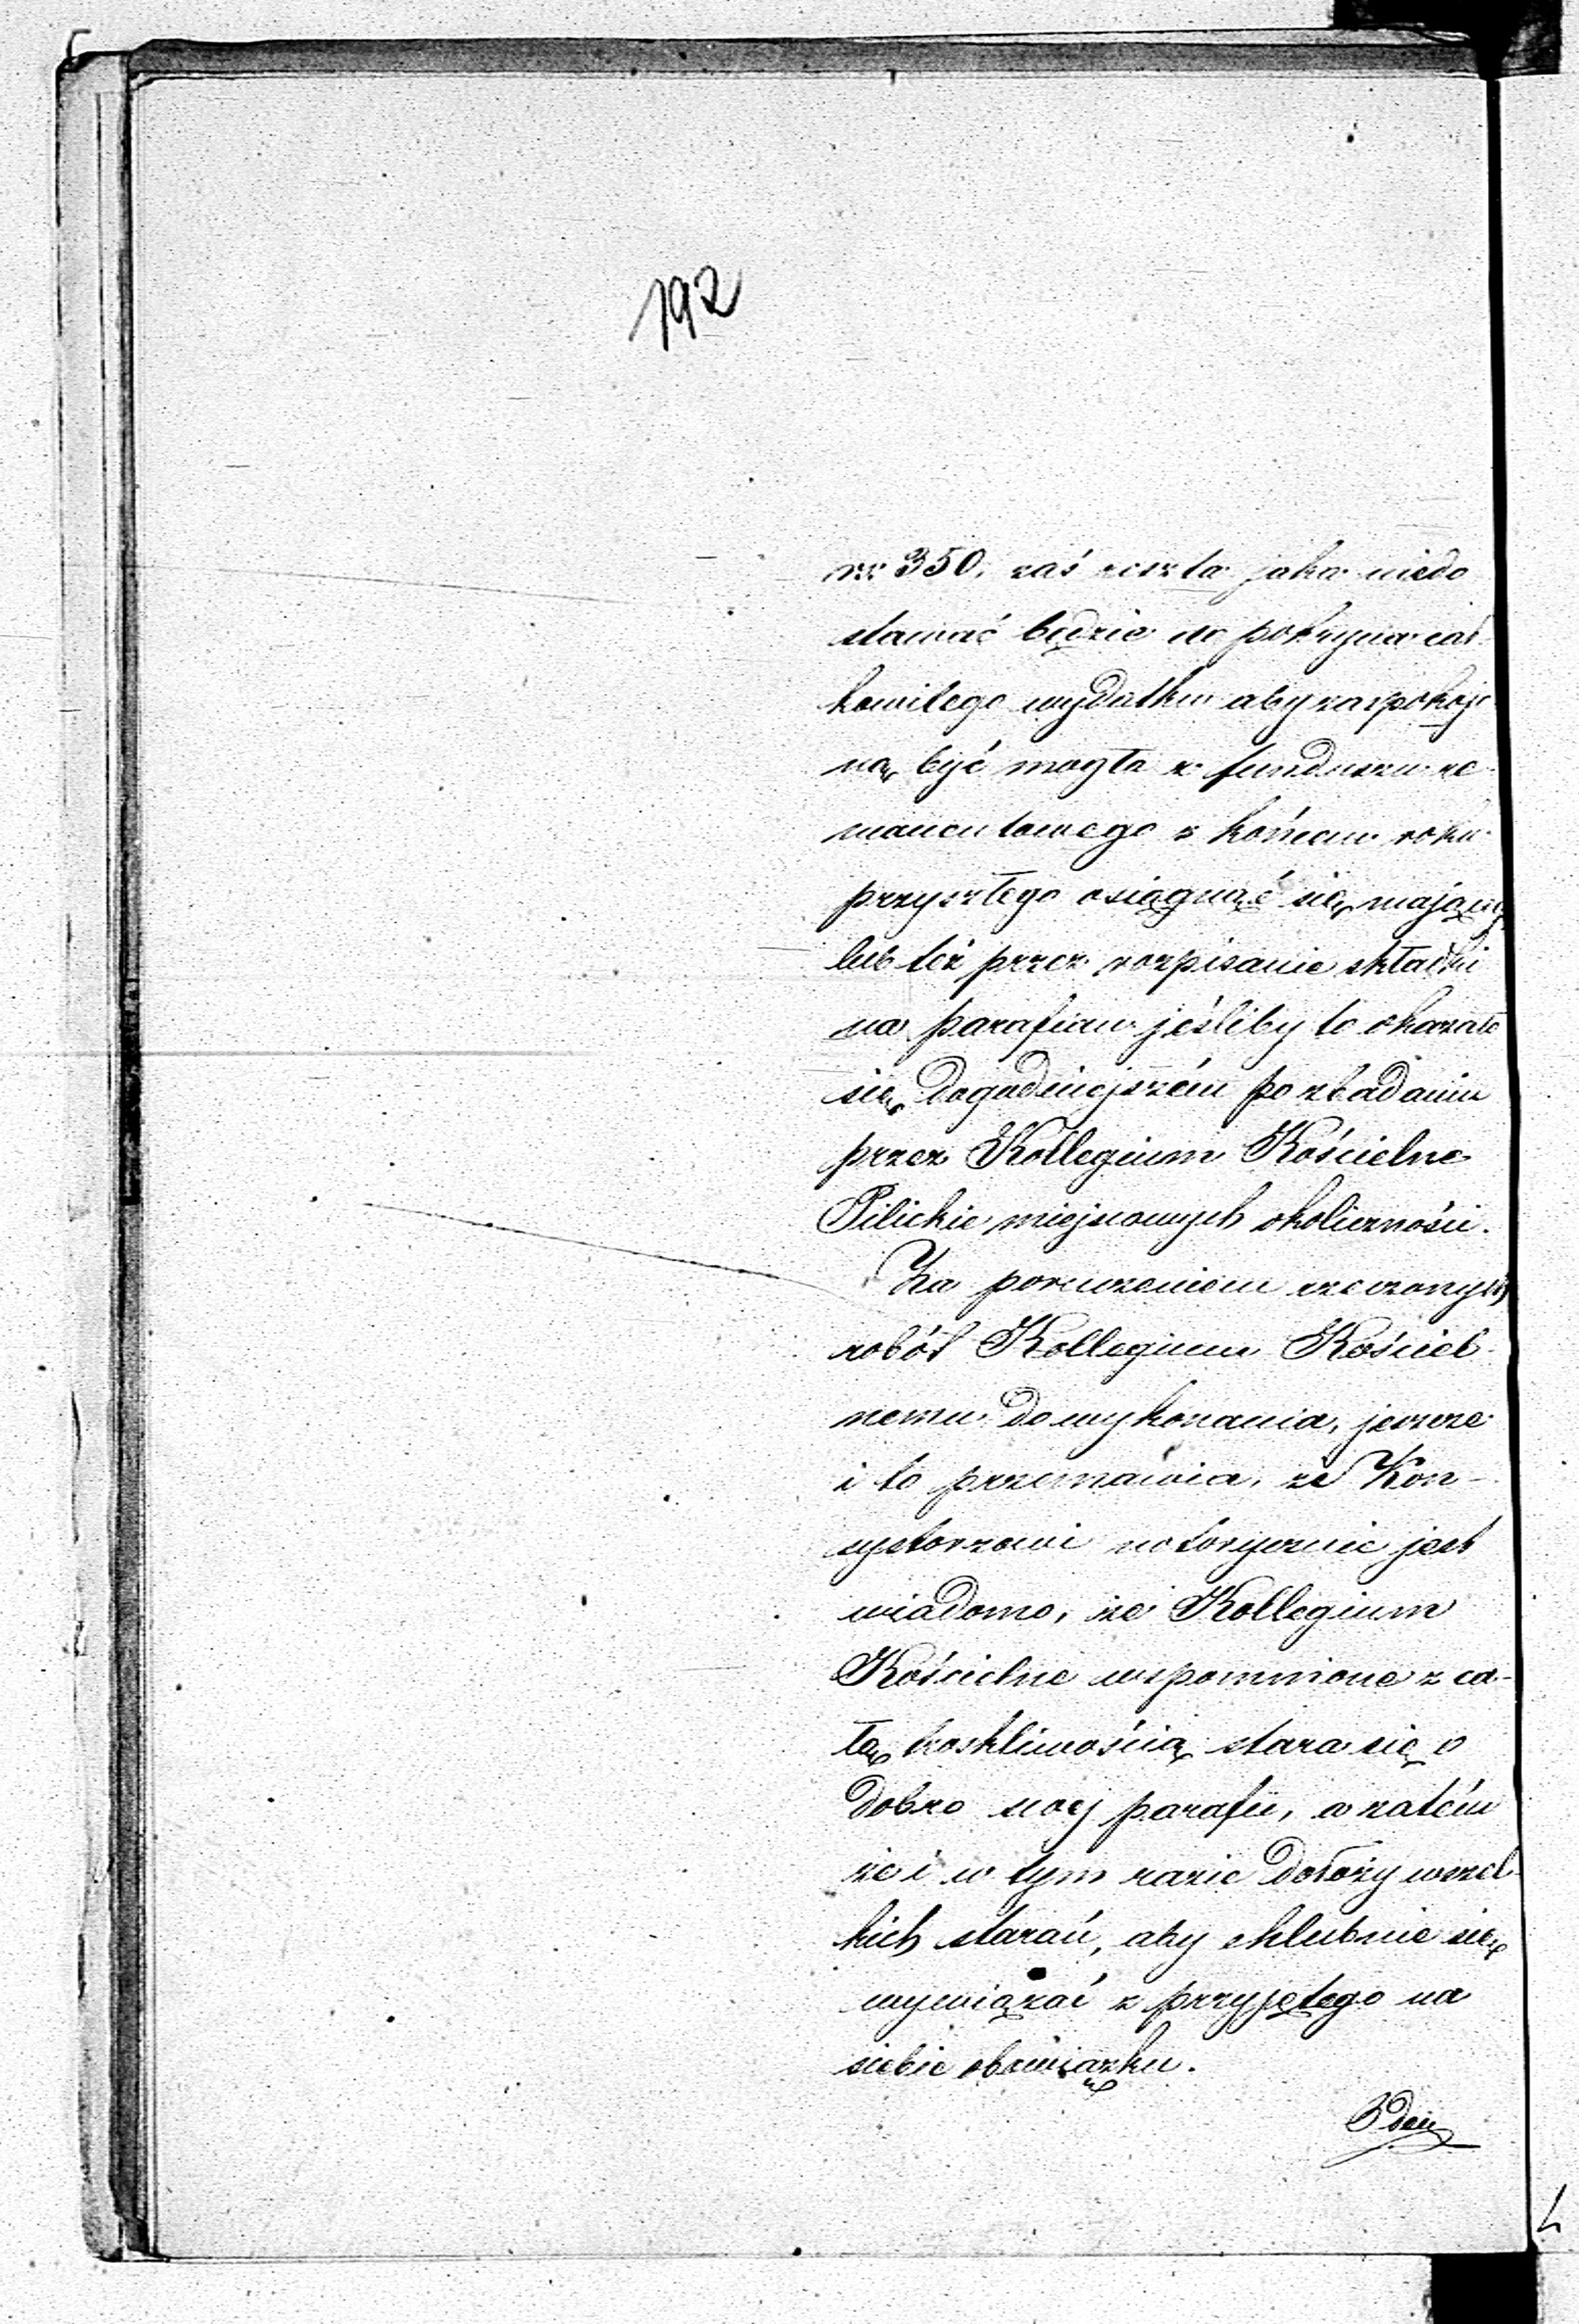 192
rs 350, zaś reszta jaka niedo
stawać będzie do pokrycia cał
kowitego wydatku aby zaspokojo
ną być mogła z funduszu re
manentowego z końcem roku
przyszłego osiągnąć się mający
lub też przez rozpisanie składki
na parafian jeśliby to okazało
się dogodniejszém po zbadaniu
przez Kollegium Kościelne
Pilickie miejscowych okoliczności.
Za poruczeniem rzeczonych
robót Kollegium Kościel
nemu do wykonania, jeszcze
i to przemawia, że Kon-
systorzowi notorycznie jest
wiadomo, że Kollegium
Kościelne wspomnione z ca-
łą troskliwością stara się o
dobro swej parafii, a zatém
że i w tym razie dołoży wszel
kich starań, aby chlubnie się
wywiązać z przyjętego na
siebie obowiązku.